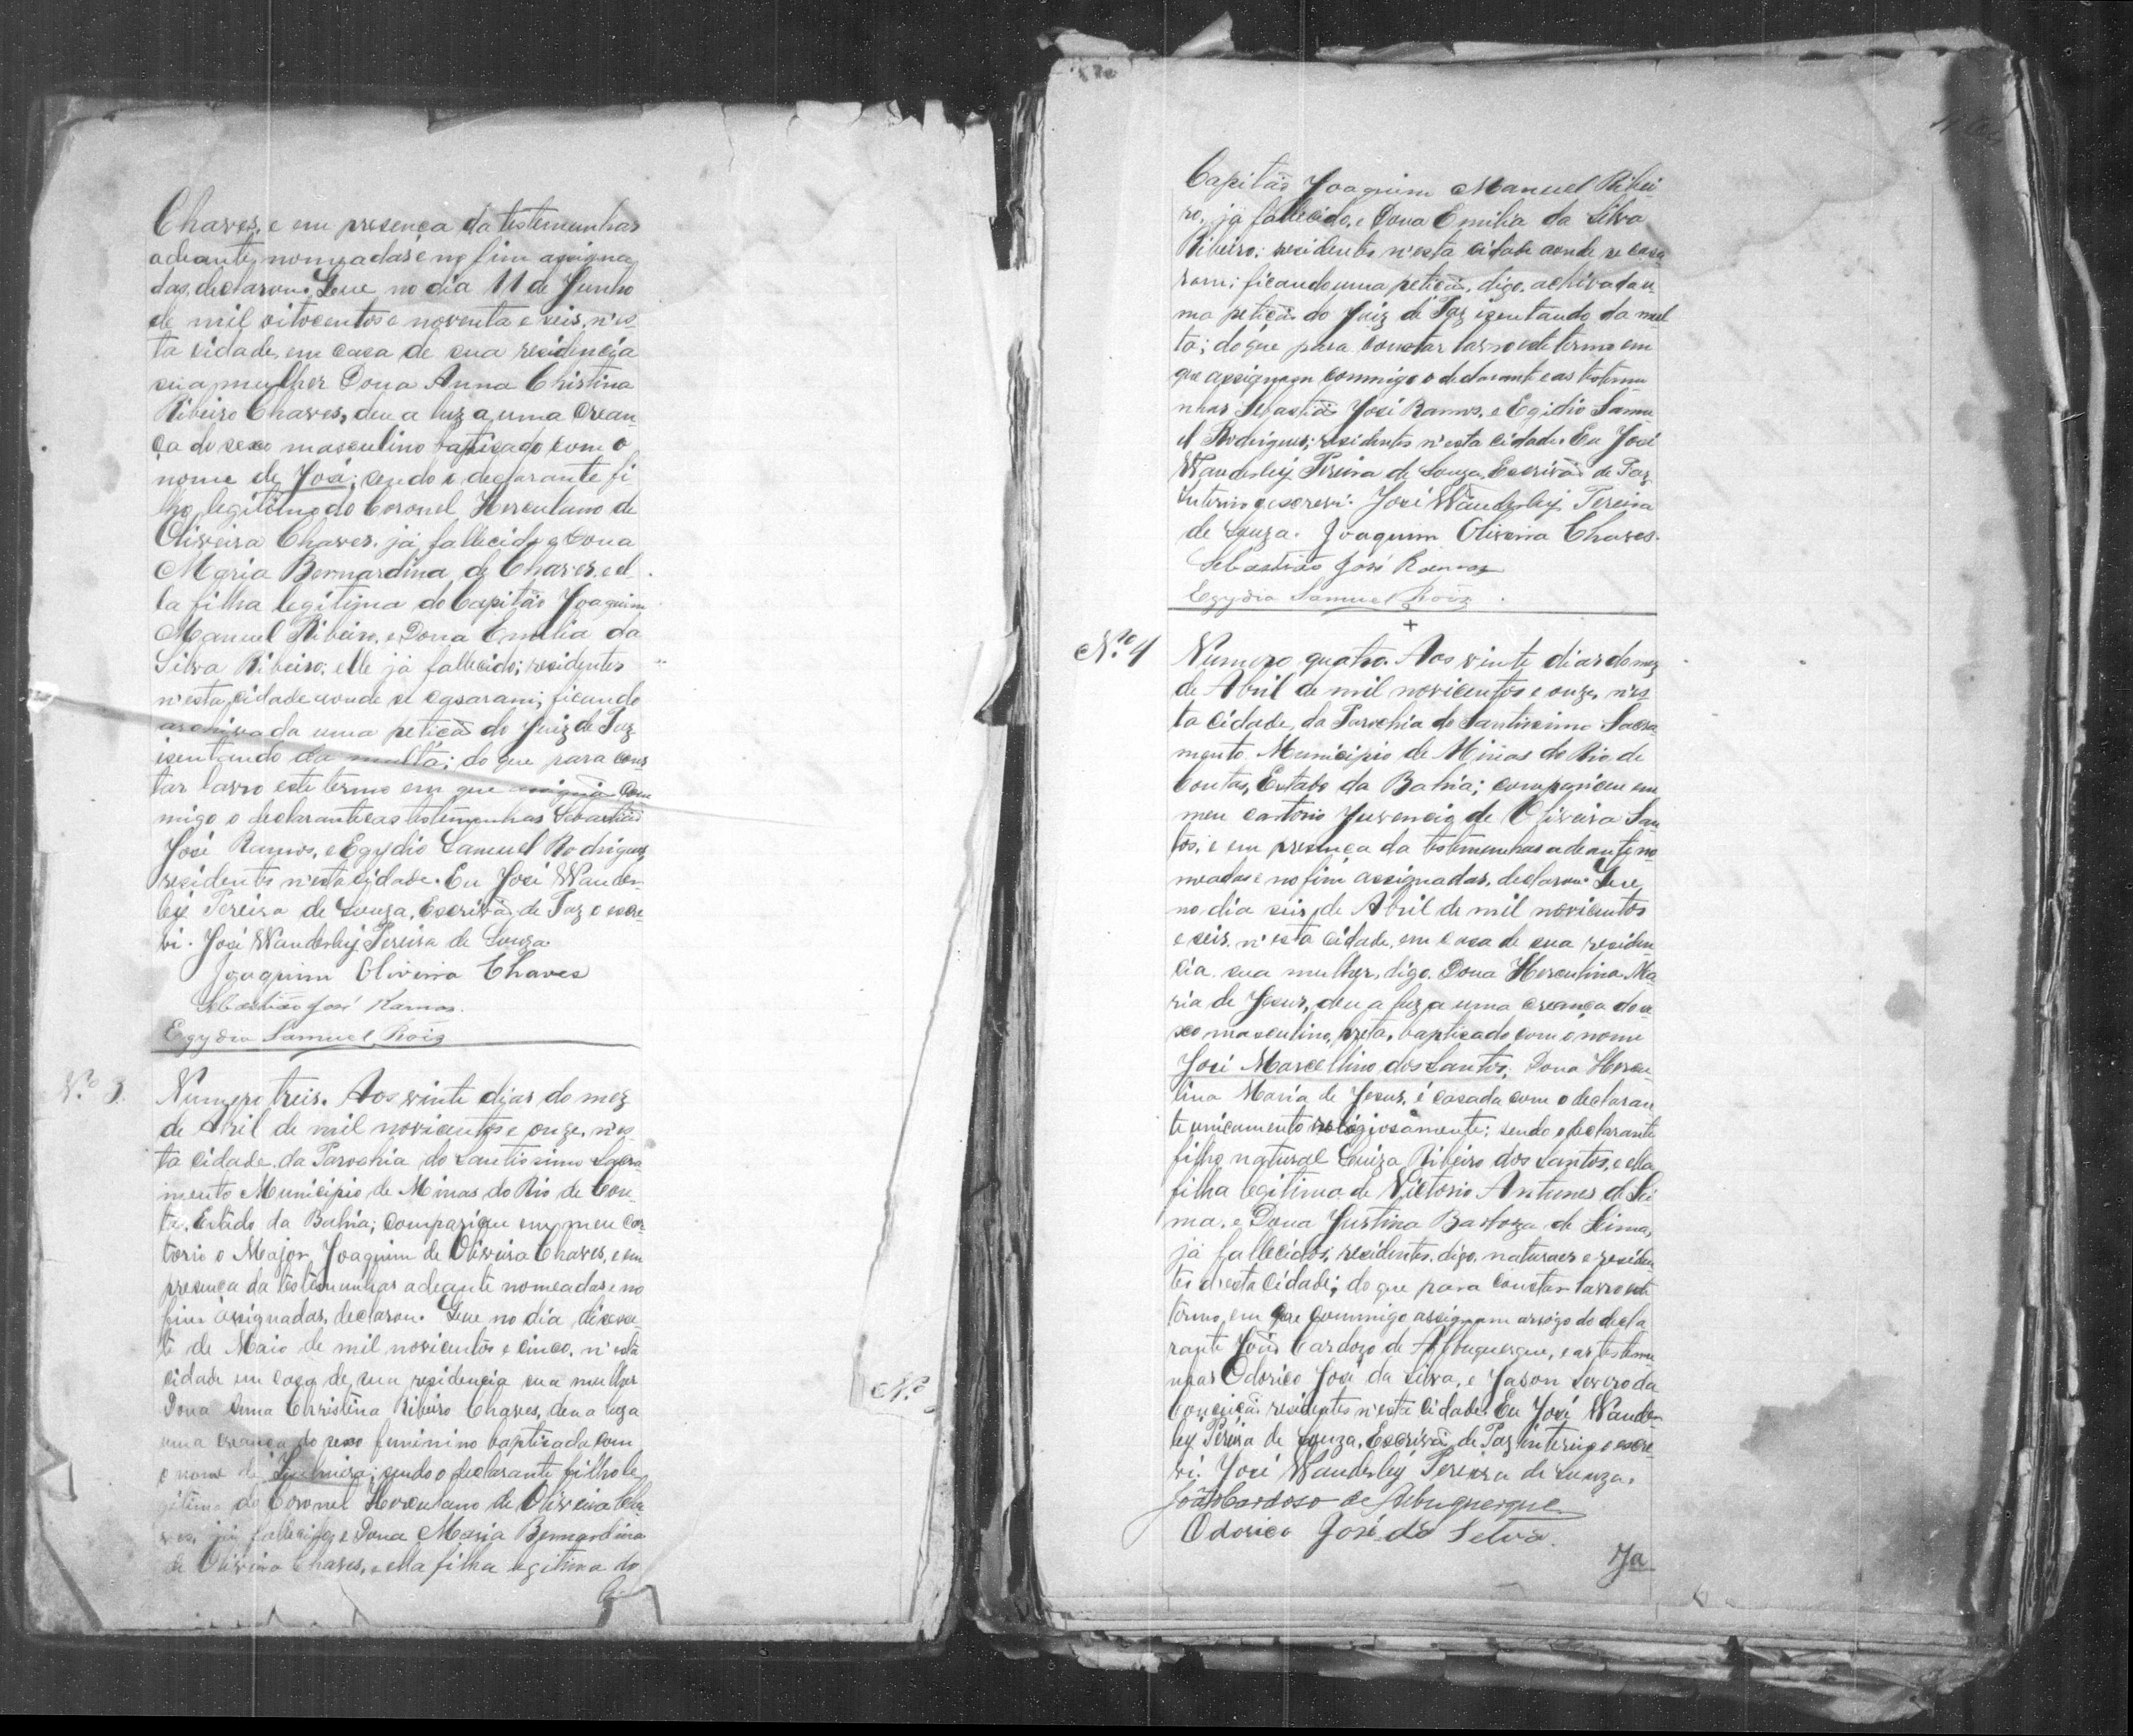 Chaves, e em presença da testemunhas
adeante nomeadas e no fim assigna
das, declarou. Que no dia 11 de Junho
de mil oitocentos e noventa e seis, n'es-
ta cidade, em casa de sua residencia
sua mulher Dona Anna Christina
Ribeiro Chaves, deu a luz a uma crean-
ça do sexo masculino baptisado com o
nome de José; sendo o declarante fi
lho legitimo do Coronel Herculano de
Oliveira Chaves, já fallecido e Dona
Maria Bernardina de Chaves, e el-
la filha legitima do Capitão Joaquim
Manuel Ribeiro, e Dona Emilia da
Silva Ribeiro; elle já fallecido; residentes
n'esta cidade aonde se casaram; ficando
archivada uma petição do Juiz de Paz
isentando da multa; do que para cons
tar lavro este termo em que assigna com
migo o declarante e as testemunhas Sebastião
José Ramos, e Egydio Samuel Rodrigues,
residentes n'esta cidade. Eu José Wander-
ley Pereira de Souza, Escrivão de Paz o escre-
vi. José Wanderley Pereira de Souza
Joaquim Oliveira Chaves
Sebastião José Ramos.
Egydio Samuel Roiz
Nº 3.
Numero treis. Aos vinte dias do mez
de Abril de mil novicentos e onze, n'es-
ta cidade, da Parochia do Santissimo Sacra-
mento Municipio de Minas do Rio de Con-
tas, Estado da Bahia; compariceu em meu car
torio o Major Joaquim de Oliveira Chaves, e em
presença da testemunhas adeante nomeadas e no
fim assignadas, declarou. Que no dia dezese-
te de Maio de mil novicentos e cinco, n'esta
cidade em casa de sua residencia sua mulher
Dona Anna Christina Ribeiro Chaves, deu a luz a
uma creança do sexo feminino baptisada com
o nome de sendo o declarante filho le
gitimo do Coronel Herculano de Oliveira Cha
ves, já fallecido, e Dona Maria Bernardina
de Oliveira Chaves, e ella filha legitima do
Ca
Nº
Capitão Joaquim Manuel Ribei
ro, já fallecido, e Dona Emilia da Silva
Ribeiro; residentes n'esta cidade aonde se casa
ram; ficando uma petição, digo, achivada u-
ma petição do Juiz de Paz isentando da mul
ta; do que para constar lavro este termo em
que assignam commigo o declarante e as testemu
nhas Sebastião José Ramos, e Egidio Samu
el Rodrigues; residentes n'esta cidade. Eu José
Wanderley Pereira de Souza, Escrivão de Paz
interino o escrevi. José Wanderley Pereira
de Souza. Joaquim Oliveira Chaves.
Sebastião José Ramos
Egydio Samuel Roiz.
Nº 4
Numero quatro. Aos vinte dias do mez
de Abril de mil novicentos e onze, n'es-
ta cidade, da Parochia do Santissimo Sacra
mento Municipio de Minas do Rio de
Contas, Estado da Bahia; compariceu em
meu cartorio Juvencio de Oliveira San
tos, e em presença da testemunhas adeante no
meadas e no fim assignadas, declarou. Que
no dia seis de Abril de mil novicentos
e seis, n'esta cidade, em casa de sua residen
cia sua mulher, digo, Dona Herculina Ma-
ria de Jesus, deu a luz a uma creança do se
xo masculino, preta, baptisado com o nome
José Marcellino dos Santos; Dona Hercu-
lina Maria de Jesus, é casada com o declaran
te unicamento religiosamente; sendo o declarante
filho natural Luiza Ribeiro dos Santos, e ella
filha legitima de Victorio Antunes de Li
ma, e Dona Justina Barboza de Lima,
já fallecidos; residentes, digo, naturaes e residen
tes d'esta Cidade; do que para constar lavro este
termo, em que commigo assignam arrogo do decla
rante João Cardozo de Albuquerque, e as testemu
nhas Odorico José da Silva, e Jason Severo da
Conceição residentes n'esta Cidade. Eu José Wander-
ley Pereira de Souza, Escrivão de Paz interino o escre-
vi. José Wanderley Pereira de Souza.
João Cardoso de Albuquerque
Odorico José da Silva.
Ja